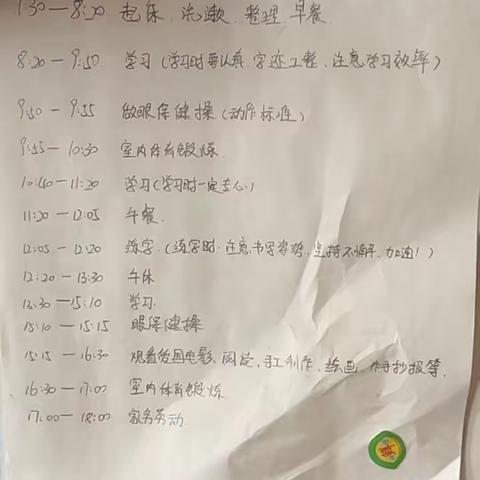 7:30—8:20 起床、洗漱、整理、早餐.
8:20—9:50 学习(学习时要认真,字迹工整,注意学习效率)
9:50—9:55 做眼保健操(动作标准)
9:55—10:30 室内体育锻炼.
10:40—11:20 学习(学习时一定专心)
11:20—12:05 午餐.
12:05—12:20 练字.(练字时,注意书写姿势,坚持不懈,加油!)
12:20—13:30 午休
13:30—15:10 学习.
15:10—15:15 眼保健操
15:15—16:30 观看爱国电影、阅读、手工制作、绘画、手抄报等.
16:30—17:00 室内体育锻炼
17:00—18:00 家务劳动